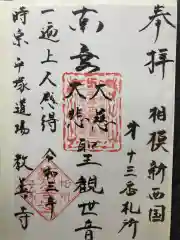 奉拝
相模新西国
第十三番札所
南無
大慈
大悲
聖観世音
一遍上人感得
令和三年
時宗平塚道場
教善寺